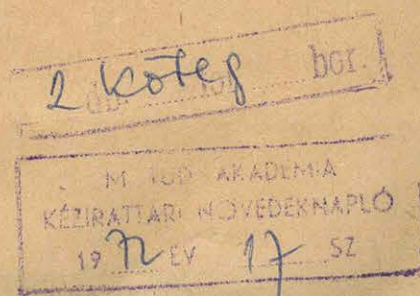 2 köteg
db. bor.
M TUD AKADEMIA
KÉZIRATTARI NÖVEDÉKNAPLÓ
19 72 ÉV 17 SZ